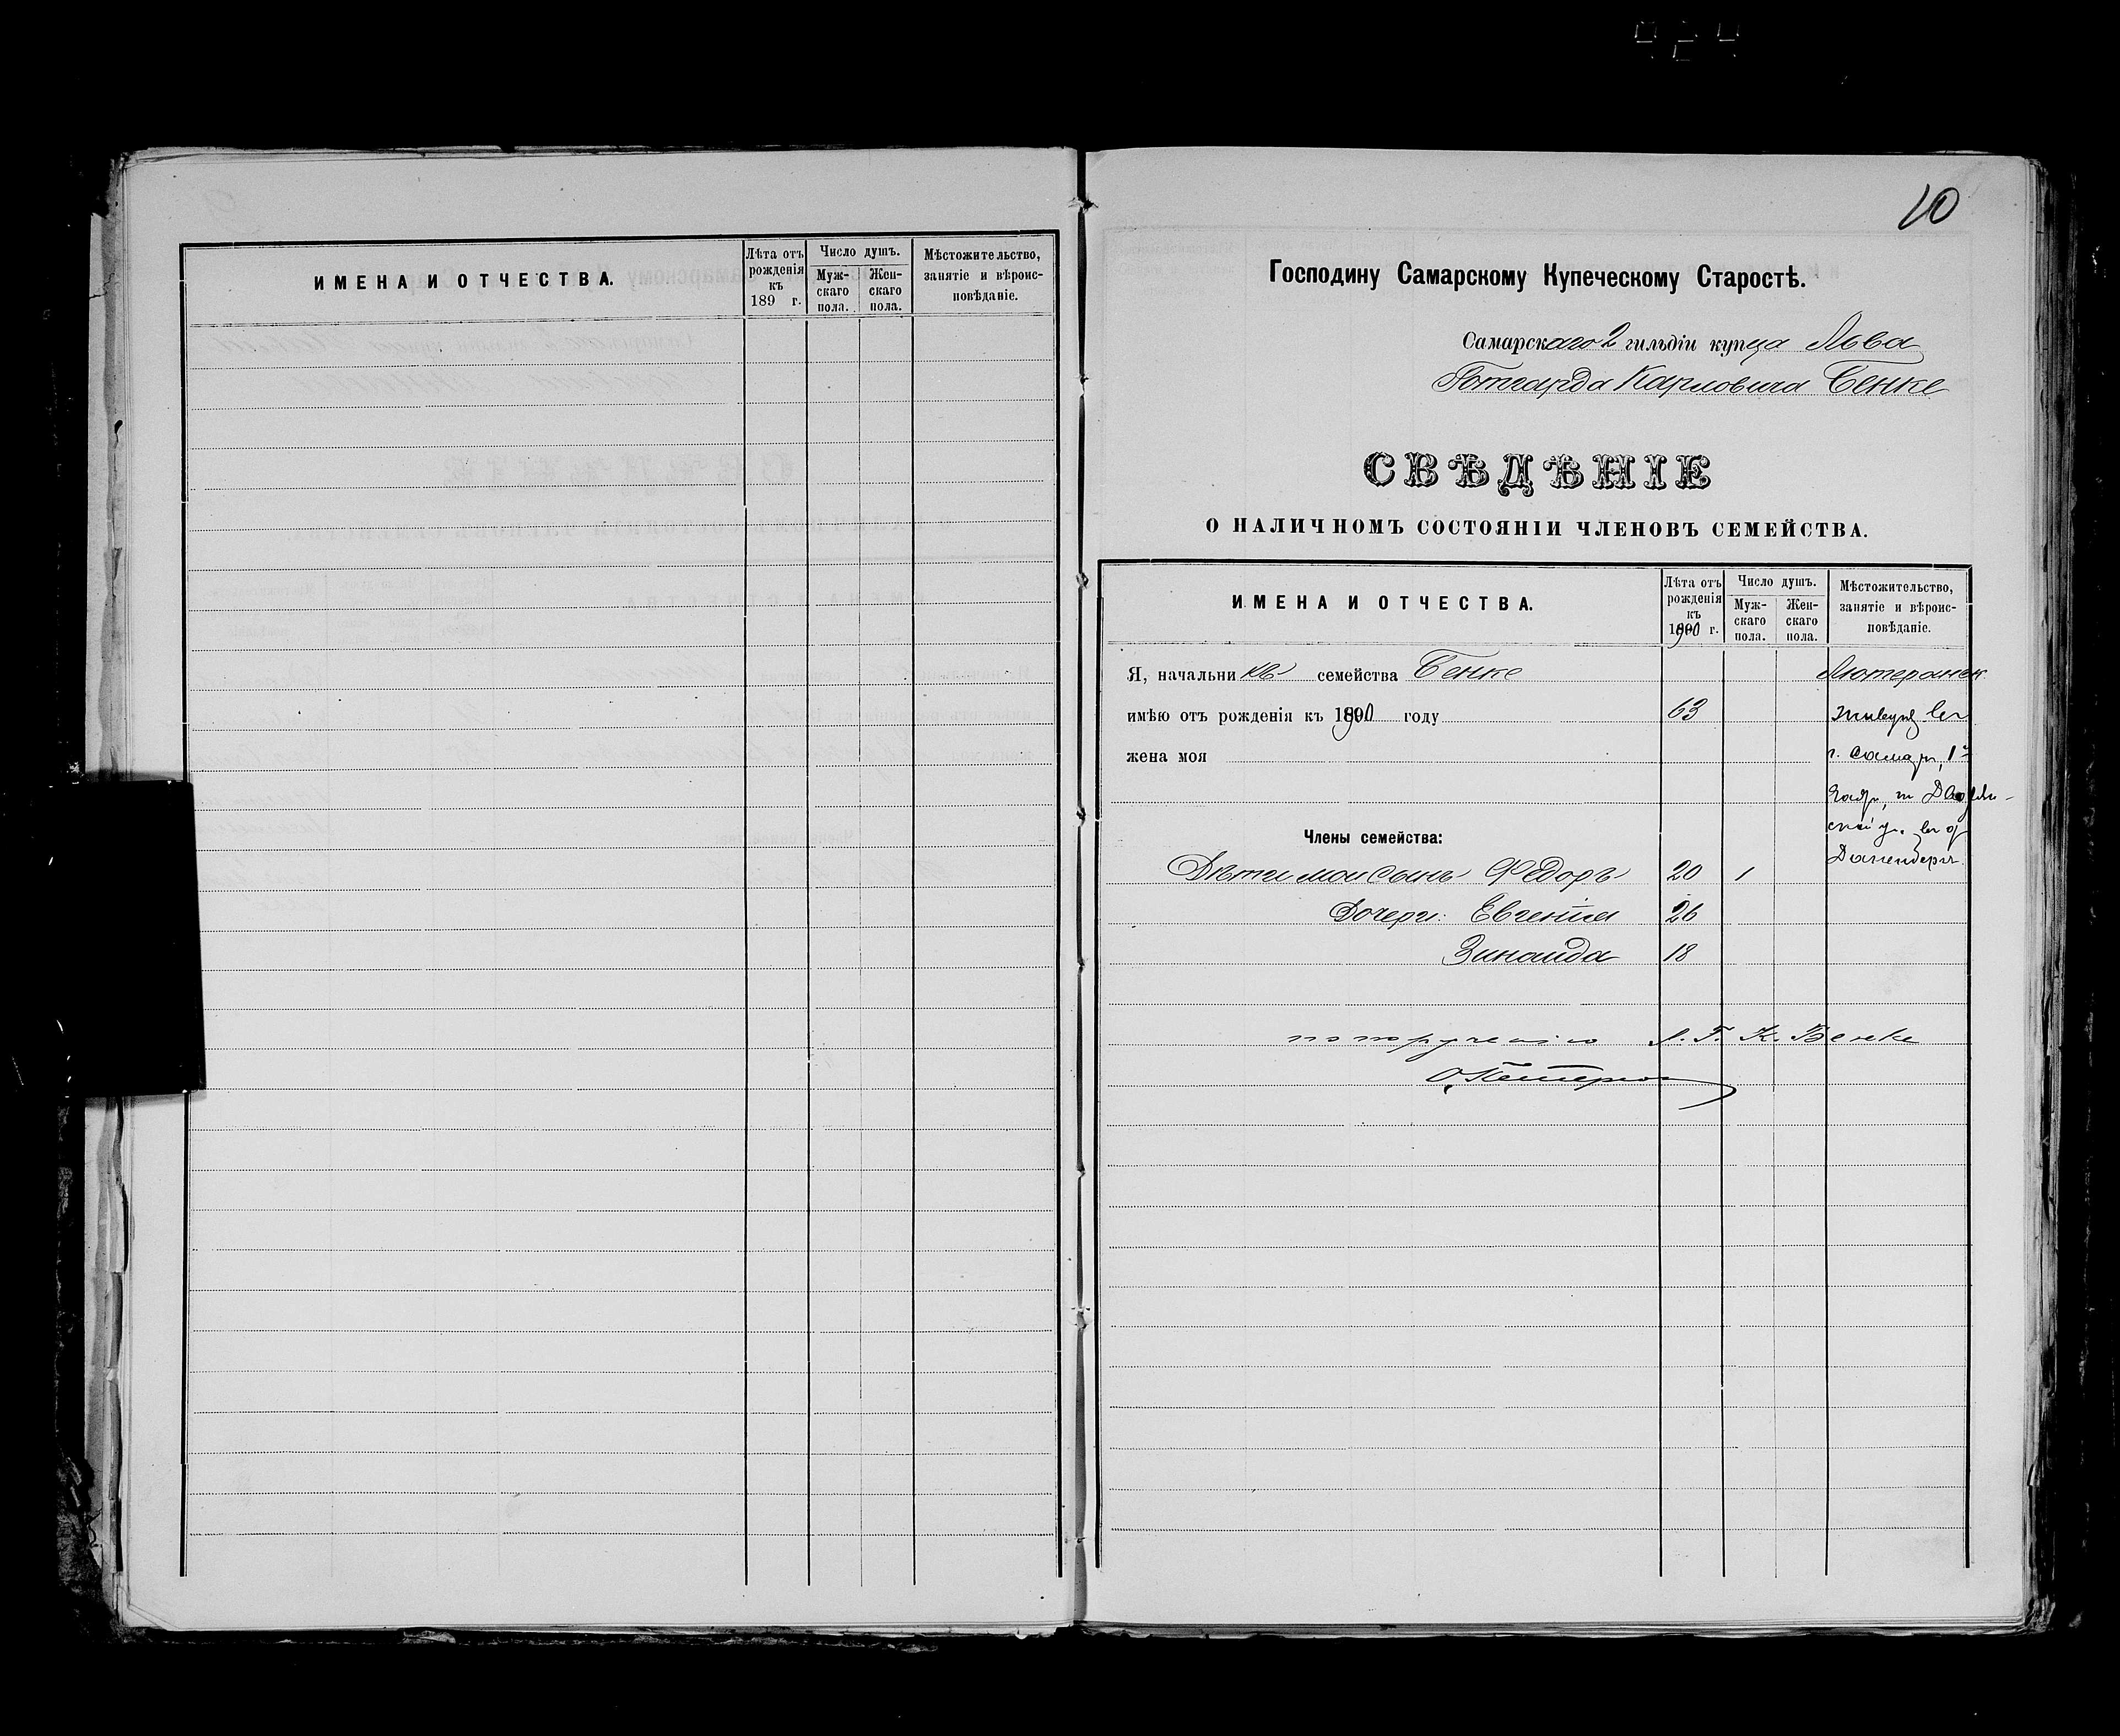 ИМЕНА И ОТЧЕСТВА.
Лѣта отъ рожденія къ 189 г.
Число душъ.
Мужскаго пола.
Женскаго пола.
Мѣстожительство, занятіе и вѣроисповѣданіе.
10
Господину Самарскому Купеческому Старостѣ.
Самарскаго 2 гильдіи купца Льва
Готгарда Карловича Бенке
СВѢДѢНІЕ
О НАЛИЧНОМЪ СОСТОЯНІИ ЧЛЕНОВЪ СЕМЕЙСТВА.
ИМЕНА И ОТЧЕСТВА.
Лѣта отъ рожденія къ 1900 г.
Число душъ.
Муж-
скаго
пола.
Жен-
скаго
пола.
Мѣстожительство,
занятіе и вѣроис-
повѣданіе.
Я, начальникъ семейства Бенке Лютеранск.
имѣю отъ рожденія къ 1900 году 63 живутъ въ
жена моя г. Самарѣ, 1й
части, по Дворян-
ской у. въ д.
Члены семейства:
Дѣти мои сынъ Федоръ 20 1
Дочери: Евгенія 26
Зинаида 18
по порученію Л. Г. К. Бенке